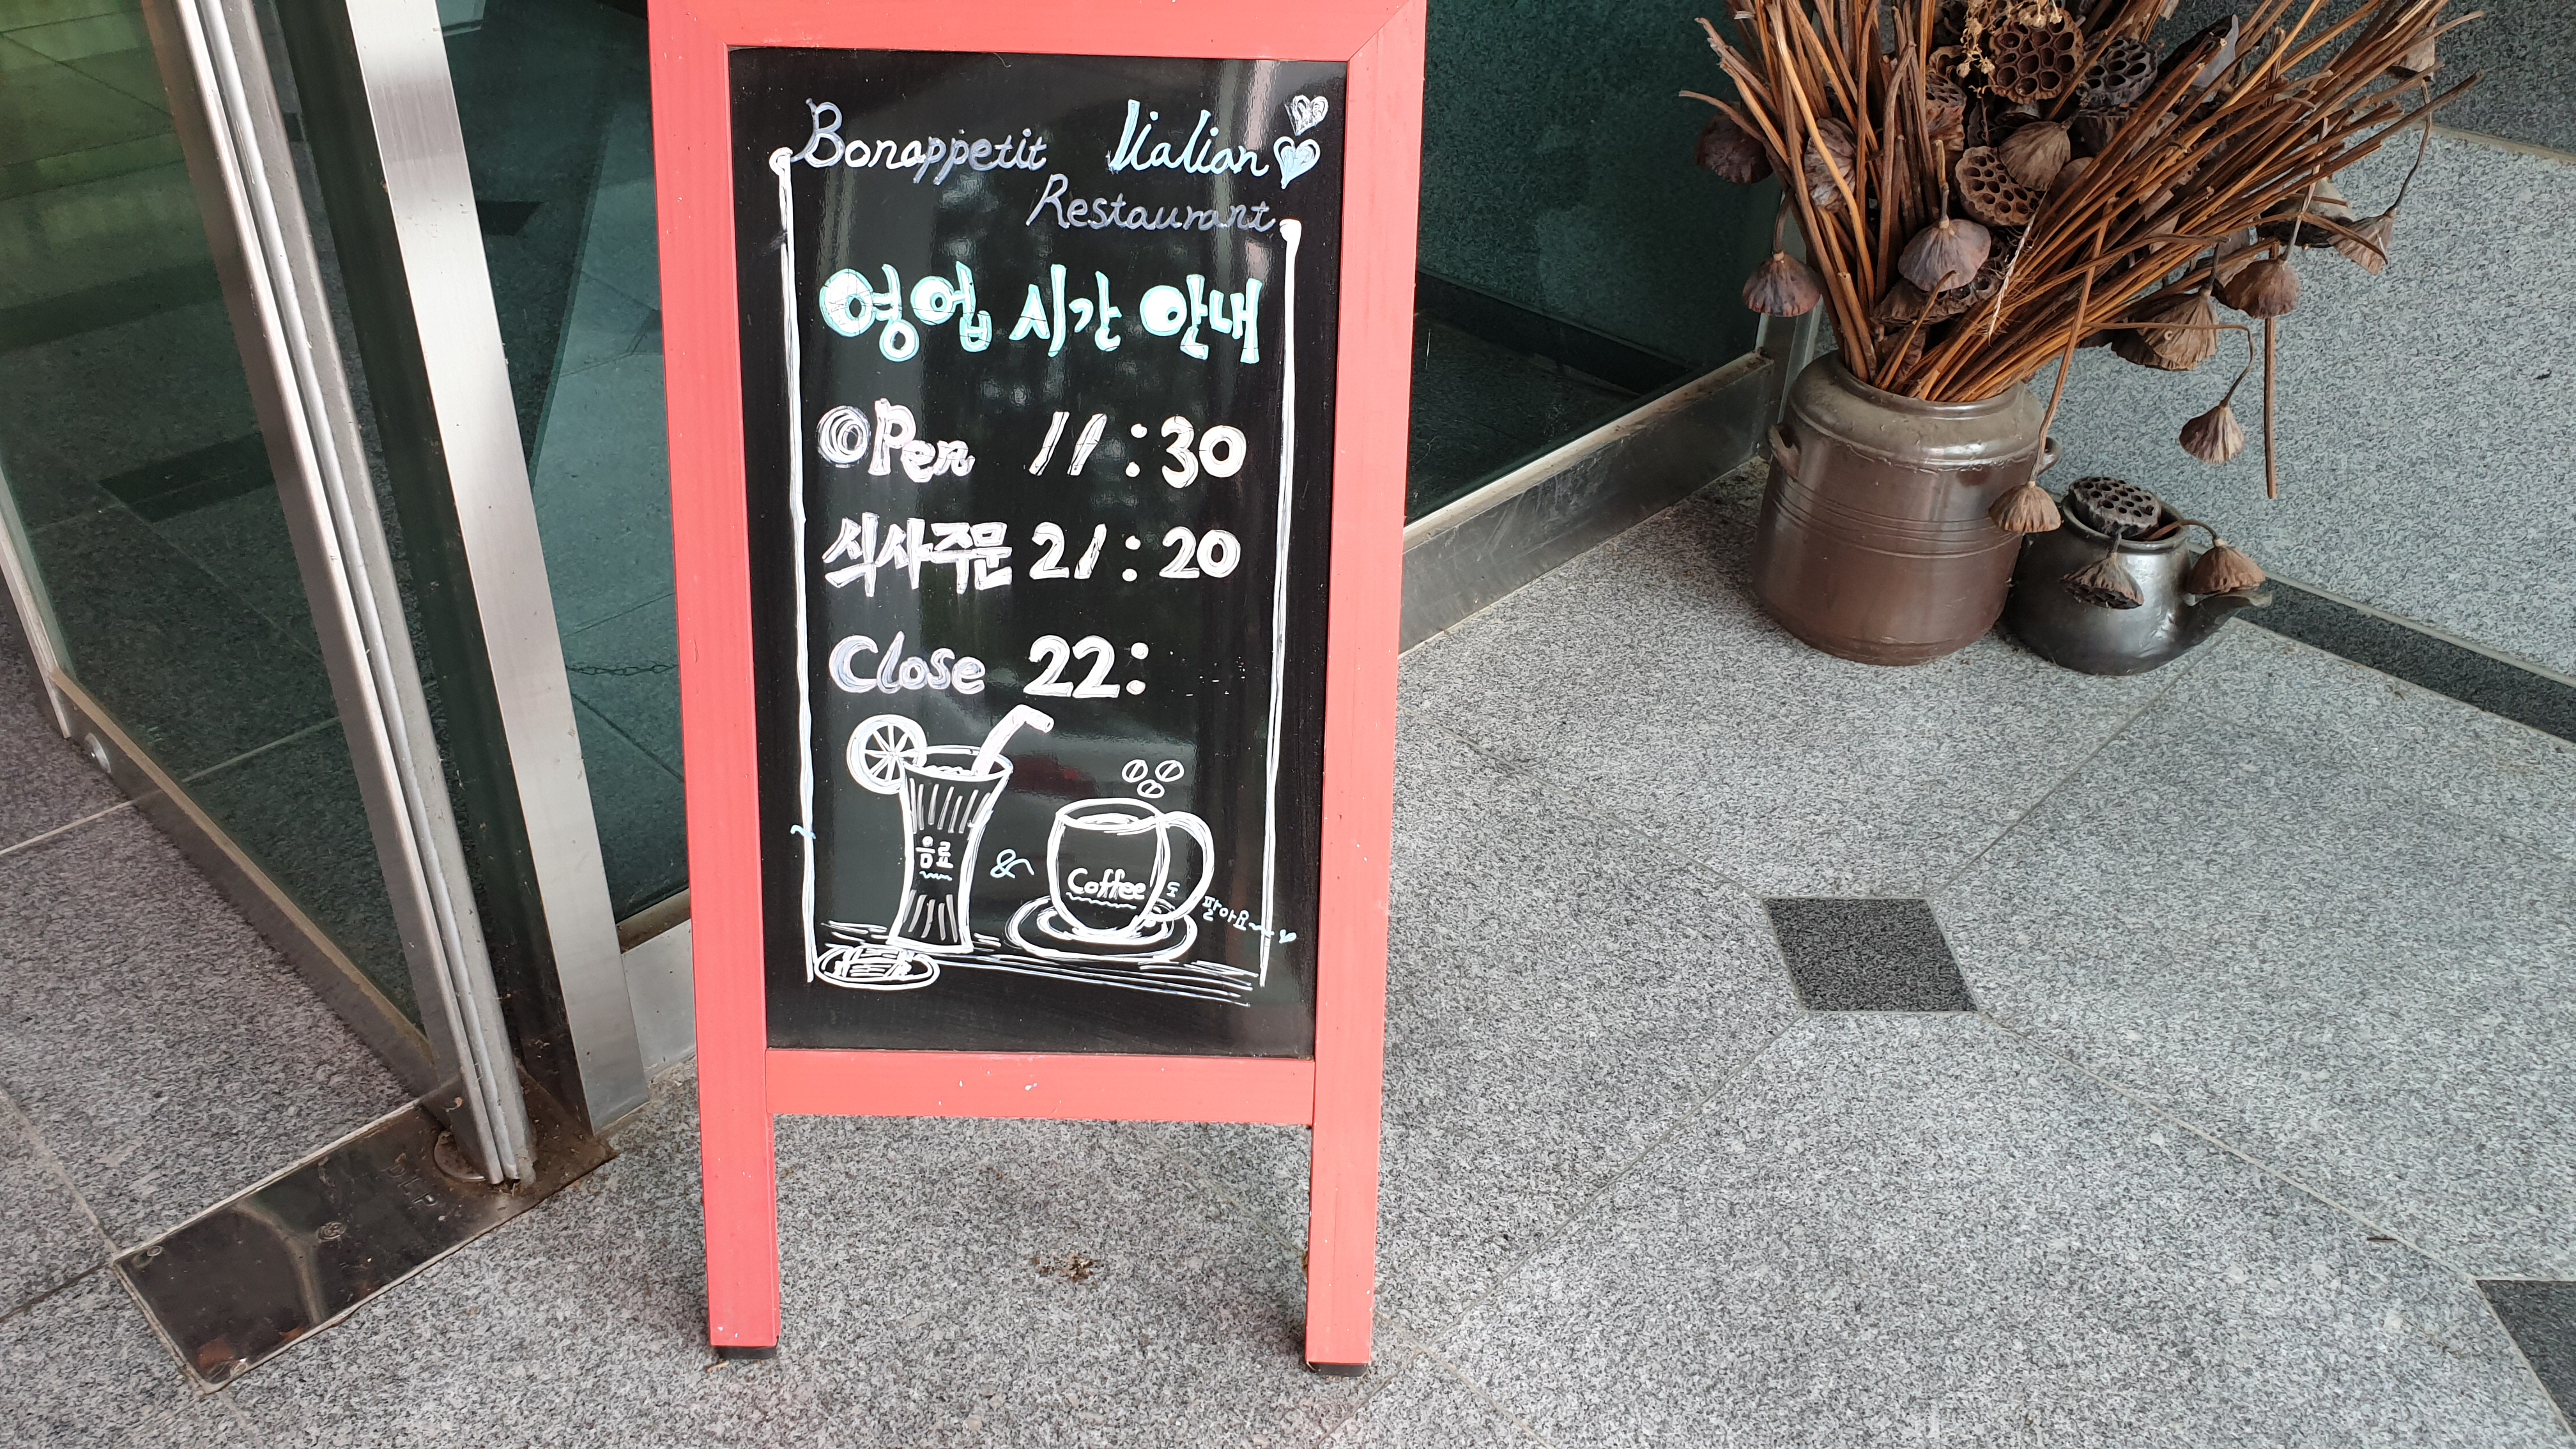 Bonappetit Italian
Restaurant
영업 시간 안내
OPen 11:30
식사주문 21:20
Close 22:
음료 & Coffee도 팔아요~
DLP